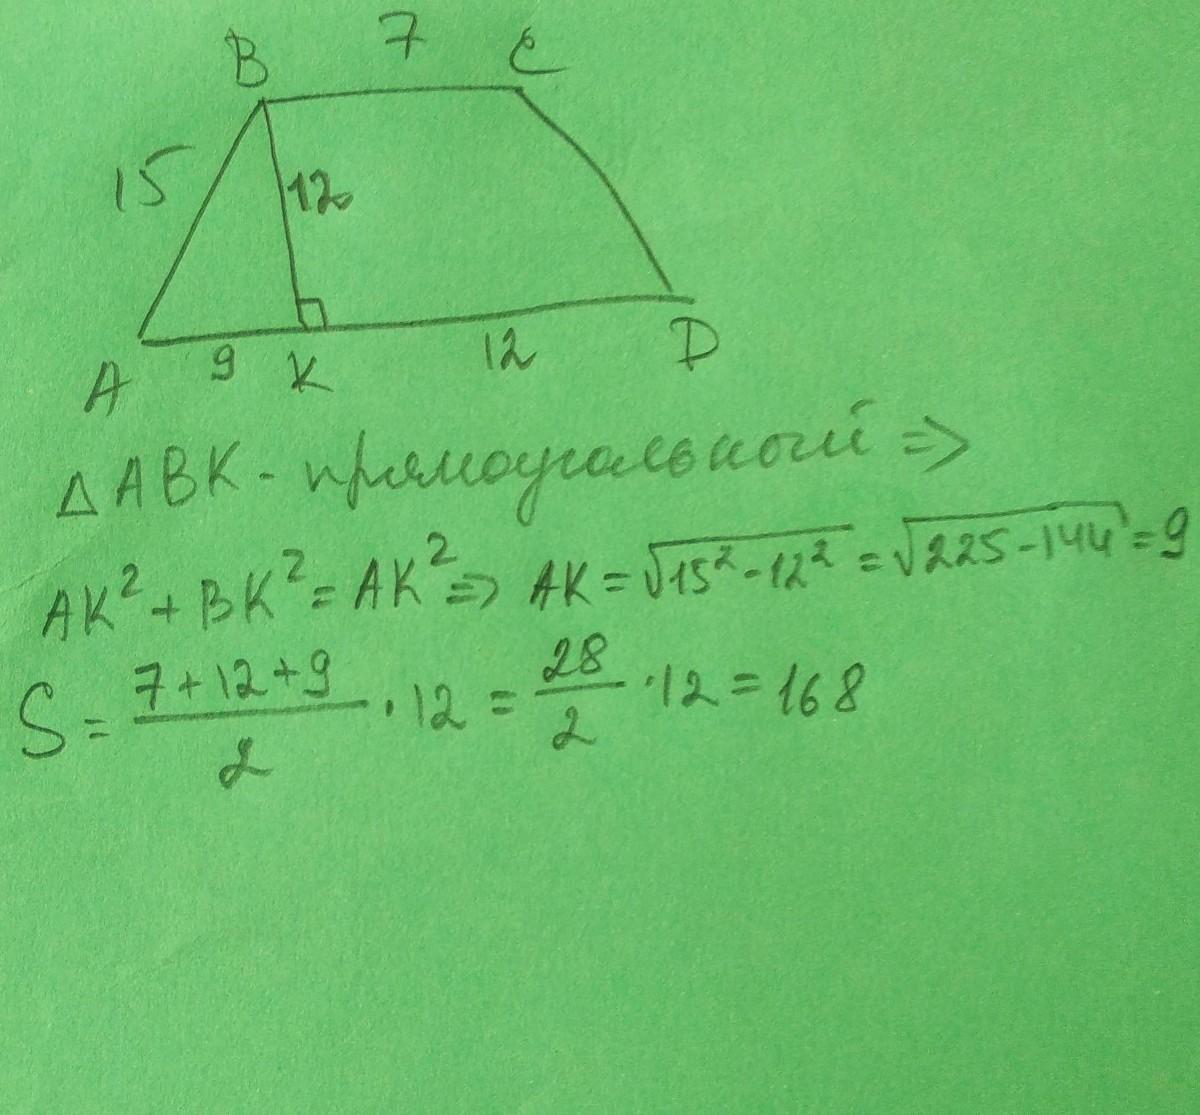 7
B C
15
12
A 9 K 12 D
△ABK - прямоугольный ⇒
AK² + BK² = AK² ⇒ AK = √15² - 12² = √225 - 144 = 9
S = (7 + 12 + 9)/2 · 12 = 28/2 · 12 = 168